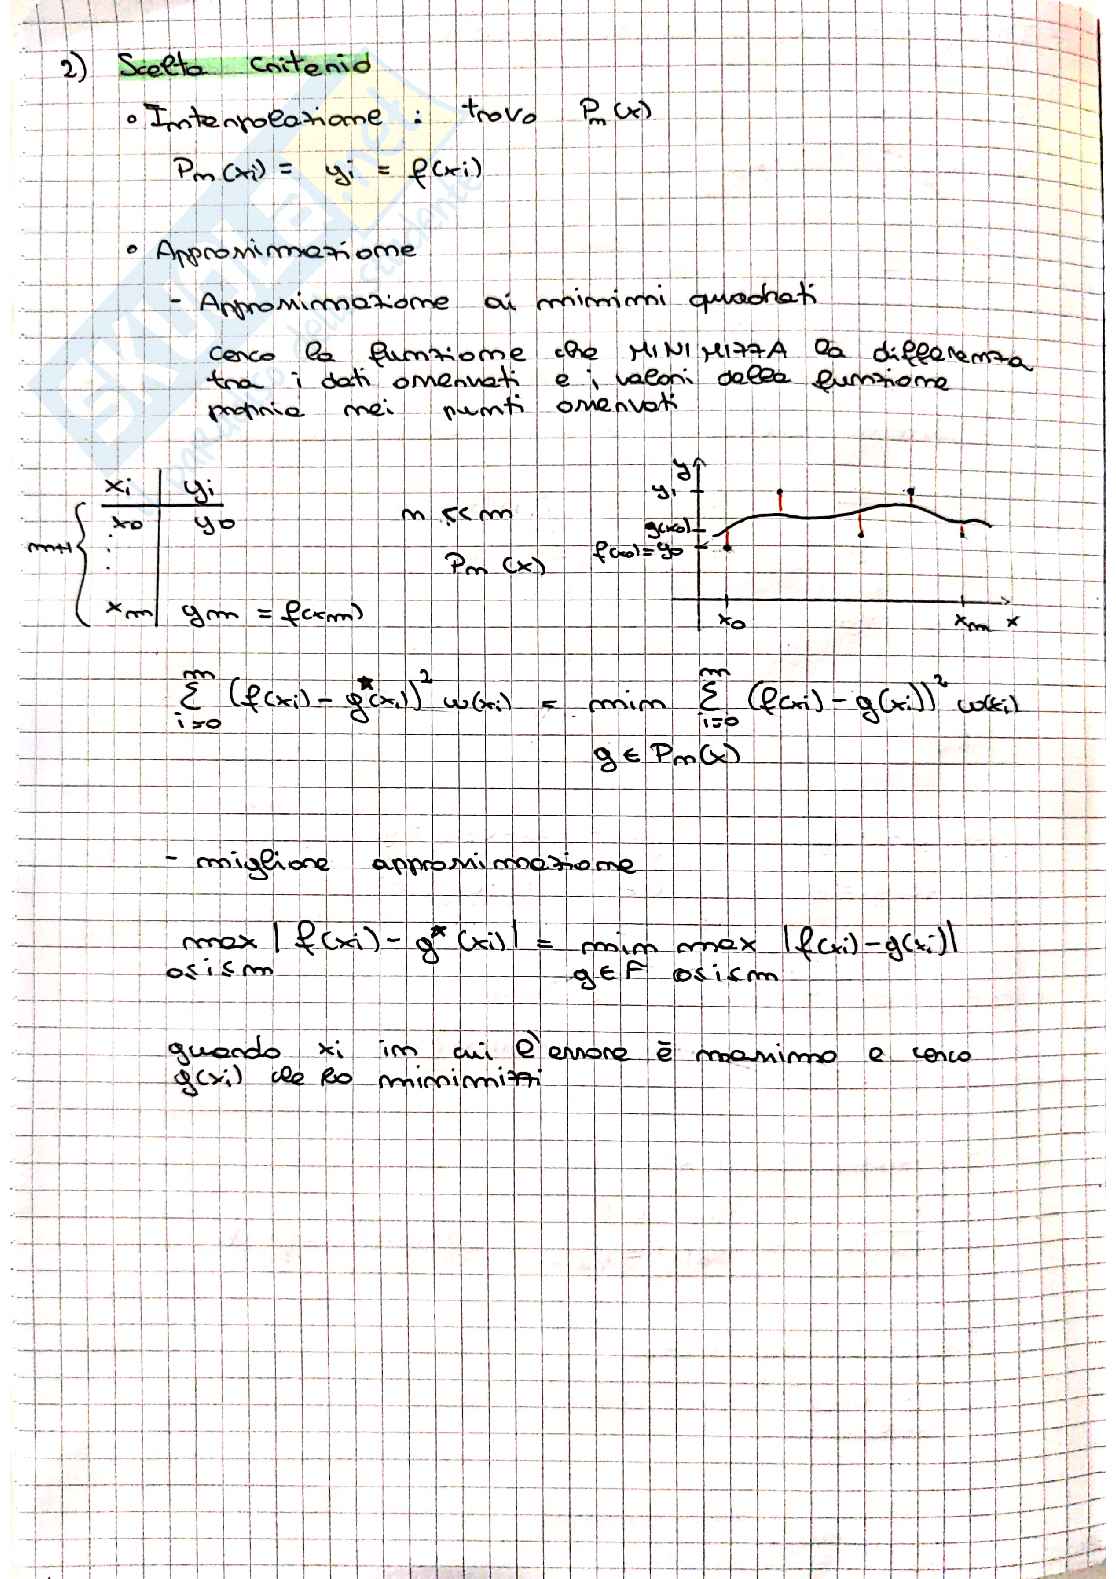 2) Scelta criterio
• Interpolazione : trovo Pn(x)
Pn(xi) = yi = f(xi)
• Approssimazione
- Approssimazione ai minimi quadrati
cerco la funzione che MINIMIZZA la differenza
tra i dati osservati e i valori della funzione
proprio nei punti osservati
xi | yi
m+1 { x0 | y0
⋮
xm | ym = f(xm)
n << m
Pn (x)
y
yi
g(x0)
f(x0) = y0
x0 xm x
m∑i=0 (f(xi) - g*(xi))² ω(xi) = min m∑i=0 (f(xi) - g(xi))² ω(xi)
g ∈ Pn(x)
- migliore approssimazione
max | f(xi) - g* (xi)| = min max |f(xi) - g(xi)|
0≤i≤m g∈F 0≤i≤m
guardo xi in cui l'errore è massimo e cerco
g(xi) che lo minimizzi
SKUOLA.net